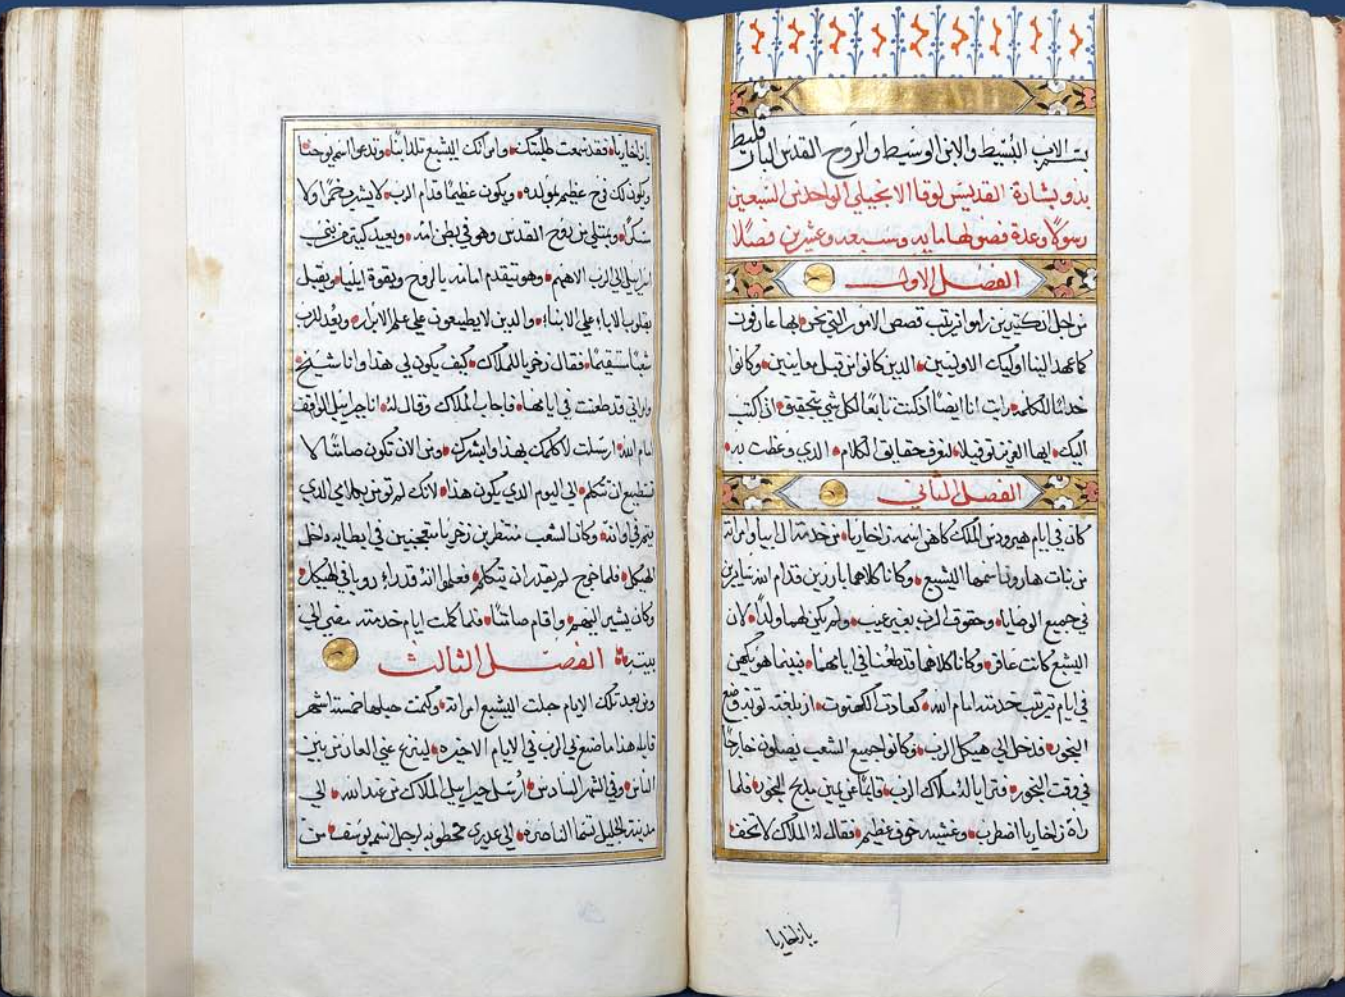 بسم الاب البسيط والابن الوسيط والروح القدس البارقليط
بدو بشارة القديس لوقا الانجيلي الواحد من السبعين
رسولا وعدة فصولها مايه وسبعه وعشرين فصلا
الفصل الاول
من اجل ان كثيرين راموا ترتيب قصص الامور التي نحن بها عارفون
كما عهد الينا اوليك الاولين الدين كانوا من قبل معاينين وكانوا
خداما للكلمه رايت انا ايضا اد كنت تابعا لكل شي بتحقيق ان اكتب
اليك ايها العزيز توفيلا لتعرف حقايق الكلام الدي وعظت به
الفصل الثاني
كان في ايام هيرودس الملك كاهن اسمه زاخاريا من خدمة ال ابيا وامراته
من بنات هارون اسمها اليشبع وكانا كلاهما بارين قدام الله سايرين
في جميع الوصايا وحقوق الرب بغير عيب ولم يكن لهما ولد لان
اليشبع كانت عاقر وكانا كلاهما قد طعنا في ايامهما بينما هو يكهن
في ايام ترتيب خدمته امام الله كعادت الكهنوت اد بلغته نوبة وضع
البخور فدخل الي هيكل الرب وكانوا جميع الشعب يصلون خارجا
في وقت البخور فترايا له ملاك الرب قايما عن يمين مدبح البخور فلما
راه زاخاريا اضطرب وغشيه خوف عظيم فقال له الملاك لا تخف
يا زاخاريا
يا زاخاريا فقد سمعت طلبتك وامراتك اليشبع تلد ابنا وتدعوا اسمه يوحنا
ويكون لك فرح عظيم بمولده ويكون عظيما قدام الرب لا يشرب خمرا ولا
سكرا ويمتلي من روح القدس وهو في بطن امه ويعيد كثيرة من بني
اسراييل الي الرب الاههم وهو يتقدم امامه بالروح وبقوة ايليا ويقبل
بقلوب الاباء علي الابناء والدين لا يطيعون علي علم الابرار ويعد للرب
شعبا مستقيما فقال زخريا للملاك كيف يكون لي هدا وانا شيخ
وامراتي قد طعنت في ايامها فاجاب الملاك وقال له انا جبراييل الواقف
امام الله ارسلت لاكلمك بهدا وابشرك ومن الان تكون صامتا لا
تستطيع ان تتكلم الي اليوم الدي يكون هدا لانك لم تومن بكلامي الدي
يتم في اوانه وكان الشعب منتظرين زخريا متعجبين في ابطايه داخل
الهيكل فلما خرج لم يقدر ان يتكلم فعلموا انه قد راء رويا في الهيكل
وكان يشير اليهم واقام صامتا فلما كملت ايام خدمته مضي الي
بيته الفصل الثالث
ومن بعد تلك الايام حبلت اليشبع امراته وكتمت حبلها خمسة اشهر
قايله هدا ما صنع لي الرب في الايام الاخيره لينزع عني العار من بين
الناس وفي الشهر السادس ارسل جبراييل الملاك من عند الله الي
مدينة الجليل تسما الناصره الي عدري مخطوبه لرجل اسمه يوسف من